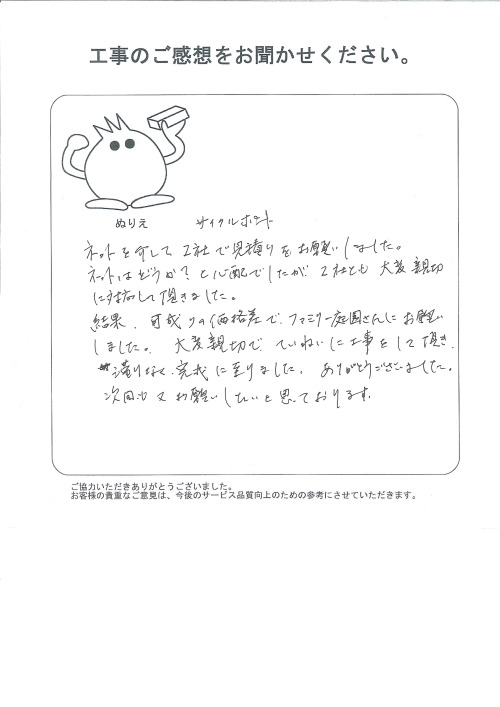 工事のご感想をお聞かせください。
ぬりえ サイクルポート
ネットを介して2社で見積りをお願いしました。
ネットはどうか?と心配でしたが2社とも大変親切
に対応して頂きました。
結果、可成りの価格差で、ファミリー庭園さんにお願い
しました。大変親切で、ていねいに工事をして頂き、
滞りなく完成に至りました。ありがとうございました。
次回も又お願いしたいと思っております。
ご協力いただきありがとうございました。
お客様の貴重なご意見は、今後のサービス品質向上のための参考にさせていただきます。